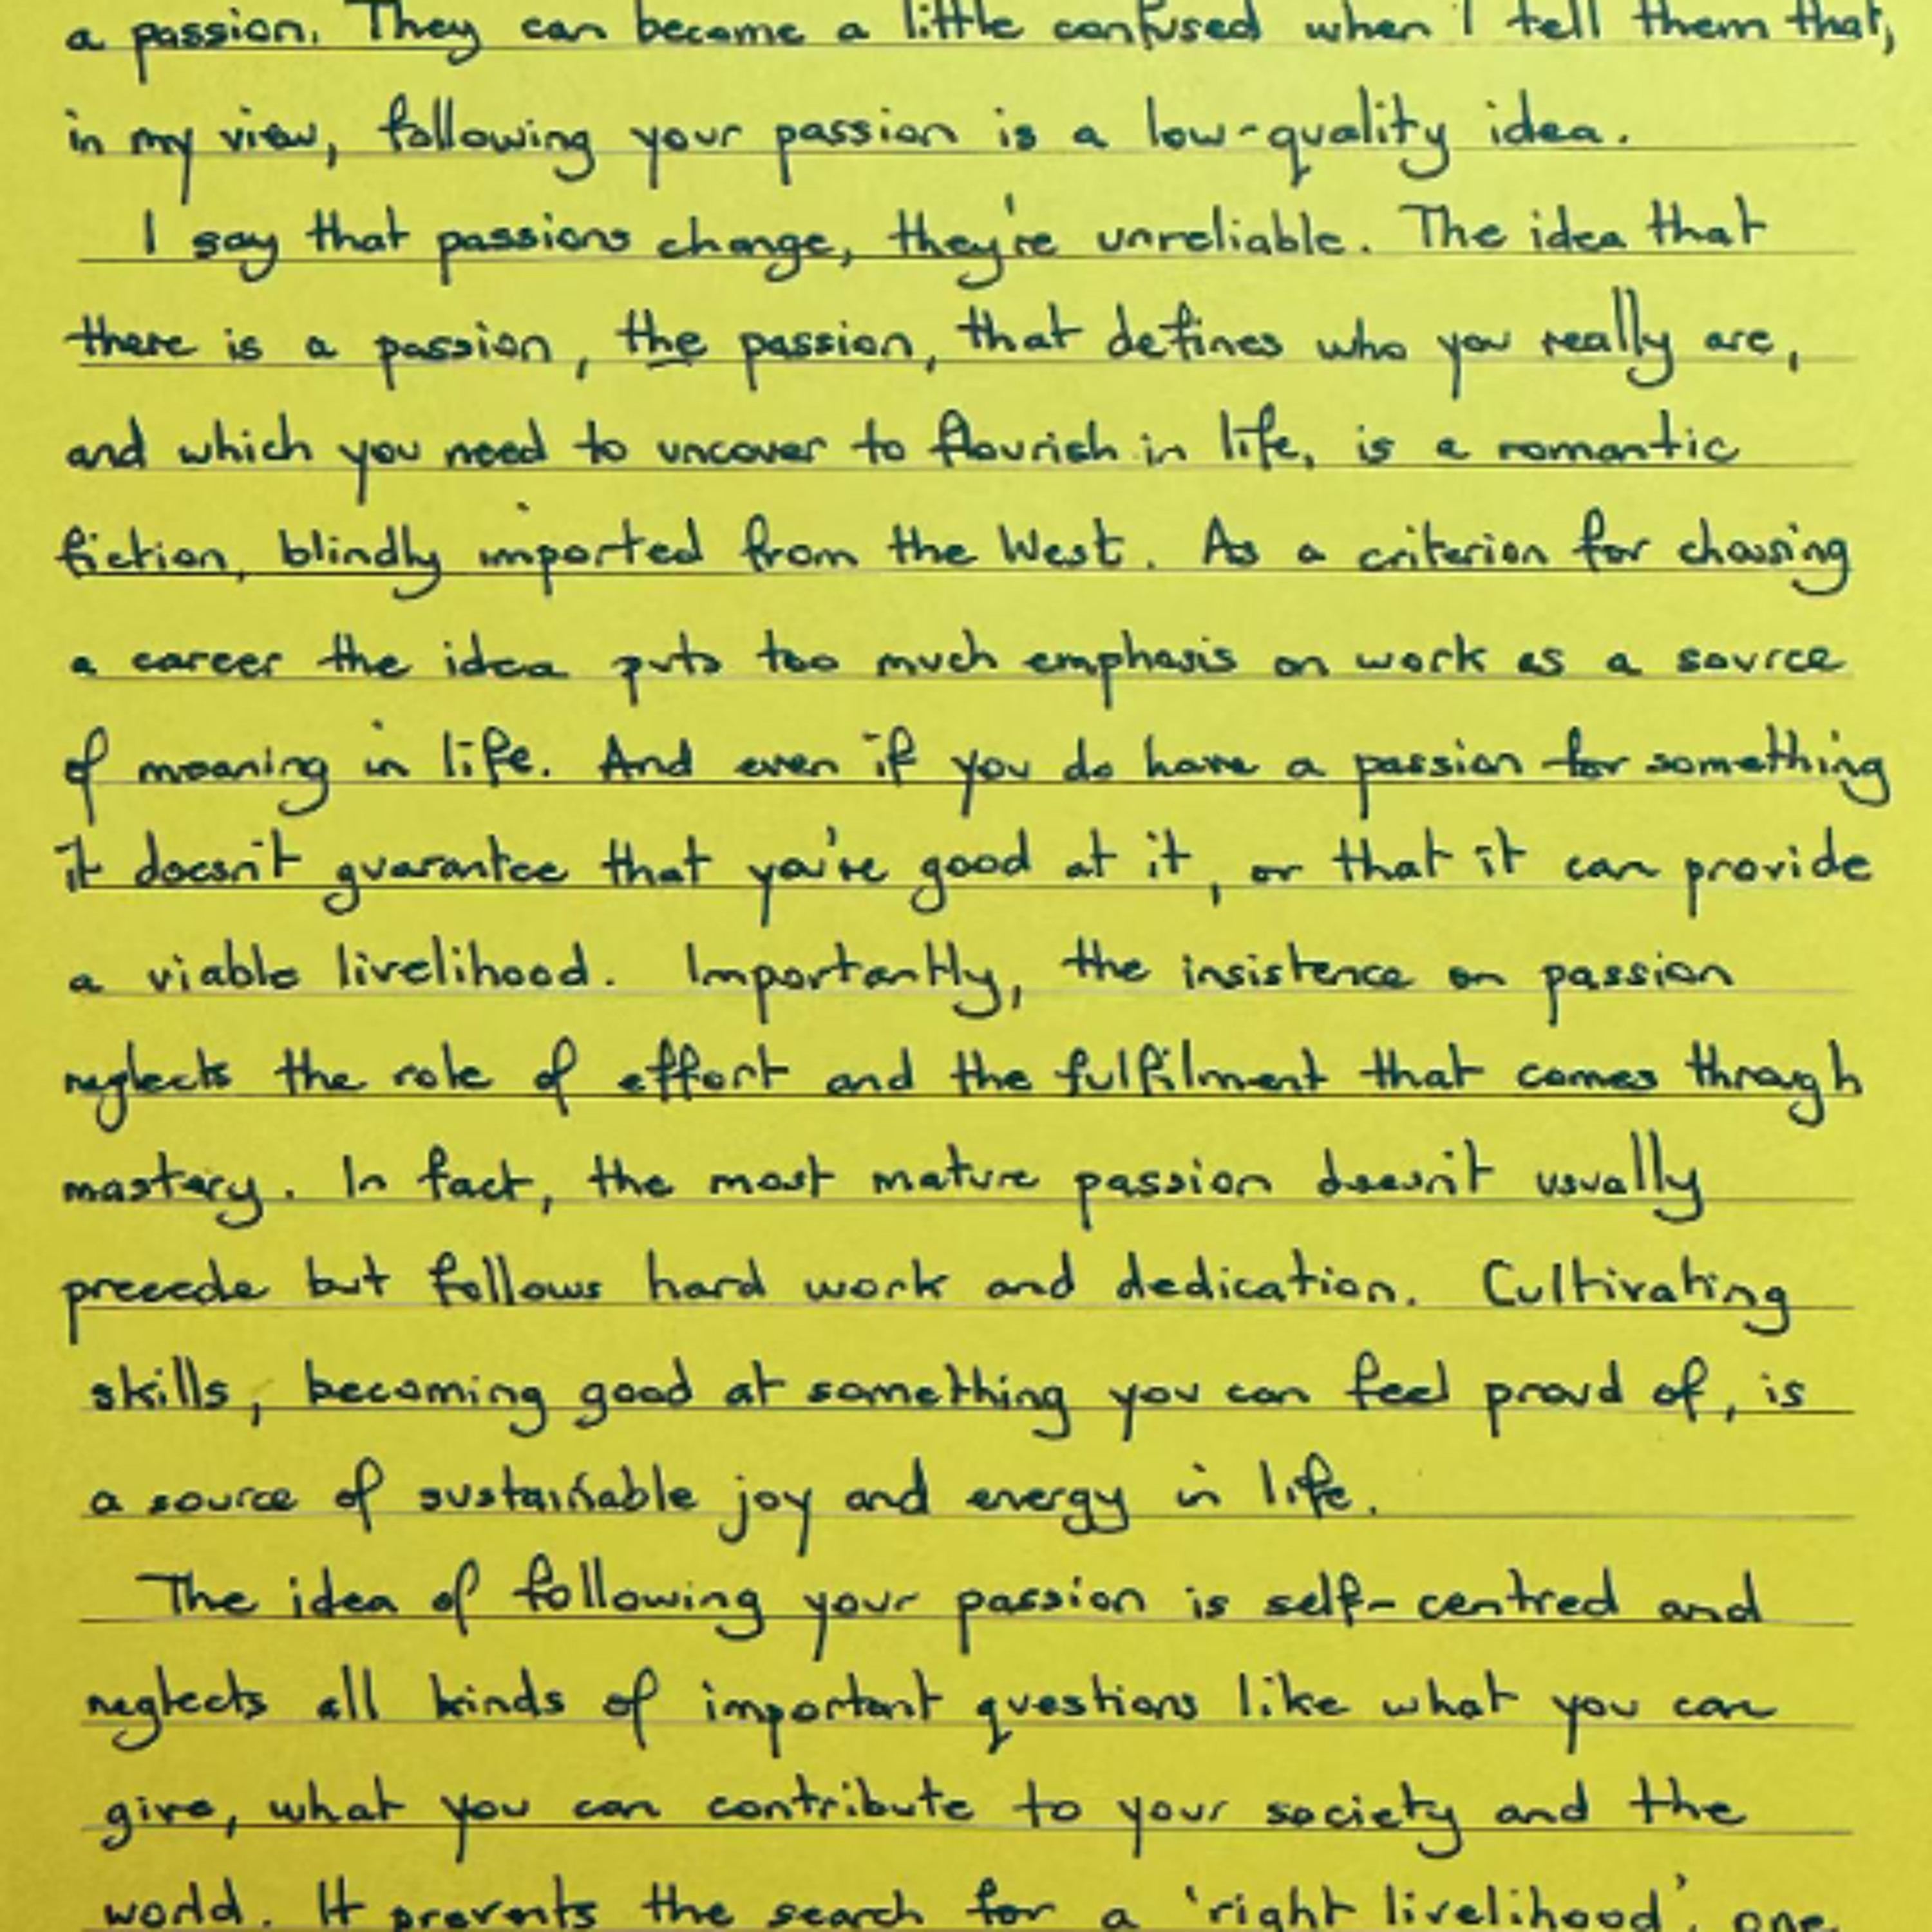 a passion. They can become a little confused when I tell them that,
in my view, following your passion is a low-quality idea.
I say that passions change, they're unreliable. The idea that
there is a passion, the passion, that defines who you really are,
and which you need to uncover to flourish in life, is a romantic
fiction, blindly imported from the West. As a criterion for choosing
a career the idea puts too much emphasis on work as a source
of meaning in life. And even if you do have a passion for something
it doesn't guarantee that you're good at it, or that it can provide
a viable livelihood. Importantly, the insistence on passion
neglects the role of effort and the fulfilment that comes through
mastery. In fact, the most mature passion doesn't usually
precede but follows hard work and dedication. Cultivating
skills, becoming good at something you can feel proud of, is
a source of sustainable joy and energy in life.
The idea of following your passion is self-centred and
neglects all kinds of important questions like what you can
give, what you can contribute to your society and the
world. It prevents the search for a 'right livelihood', one